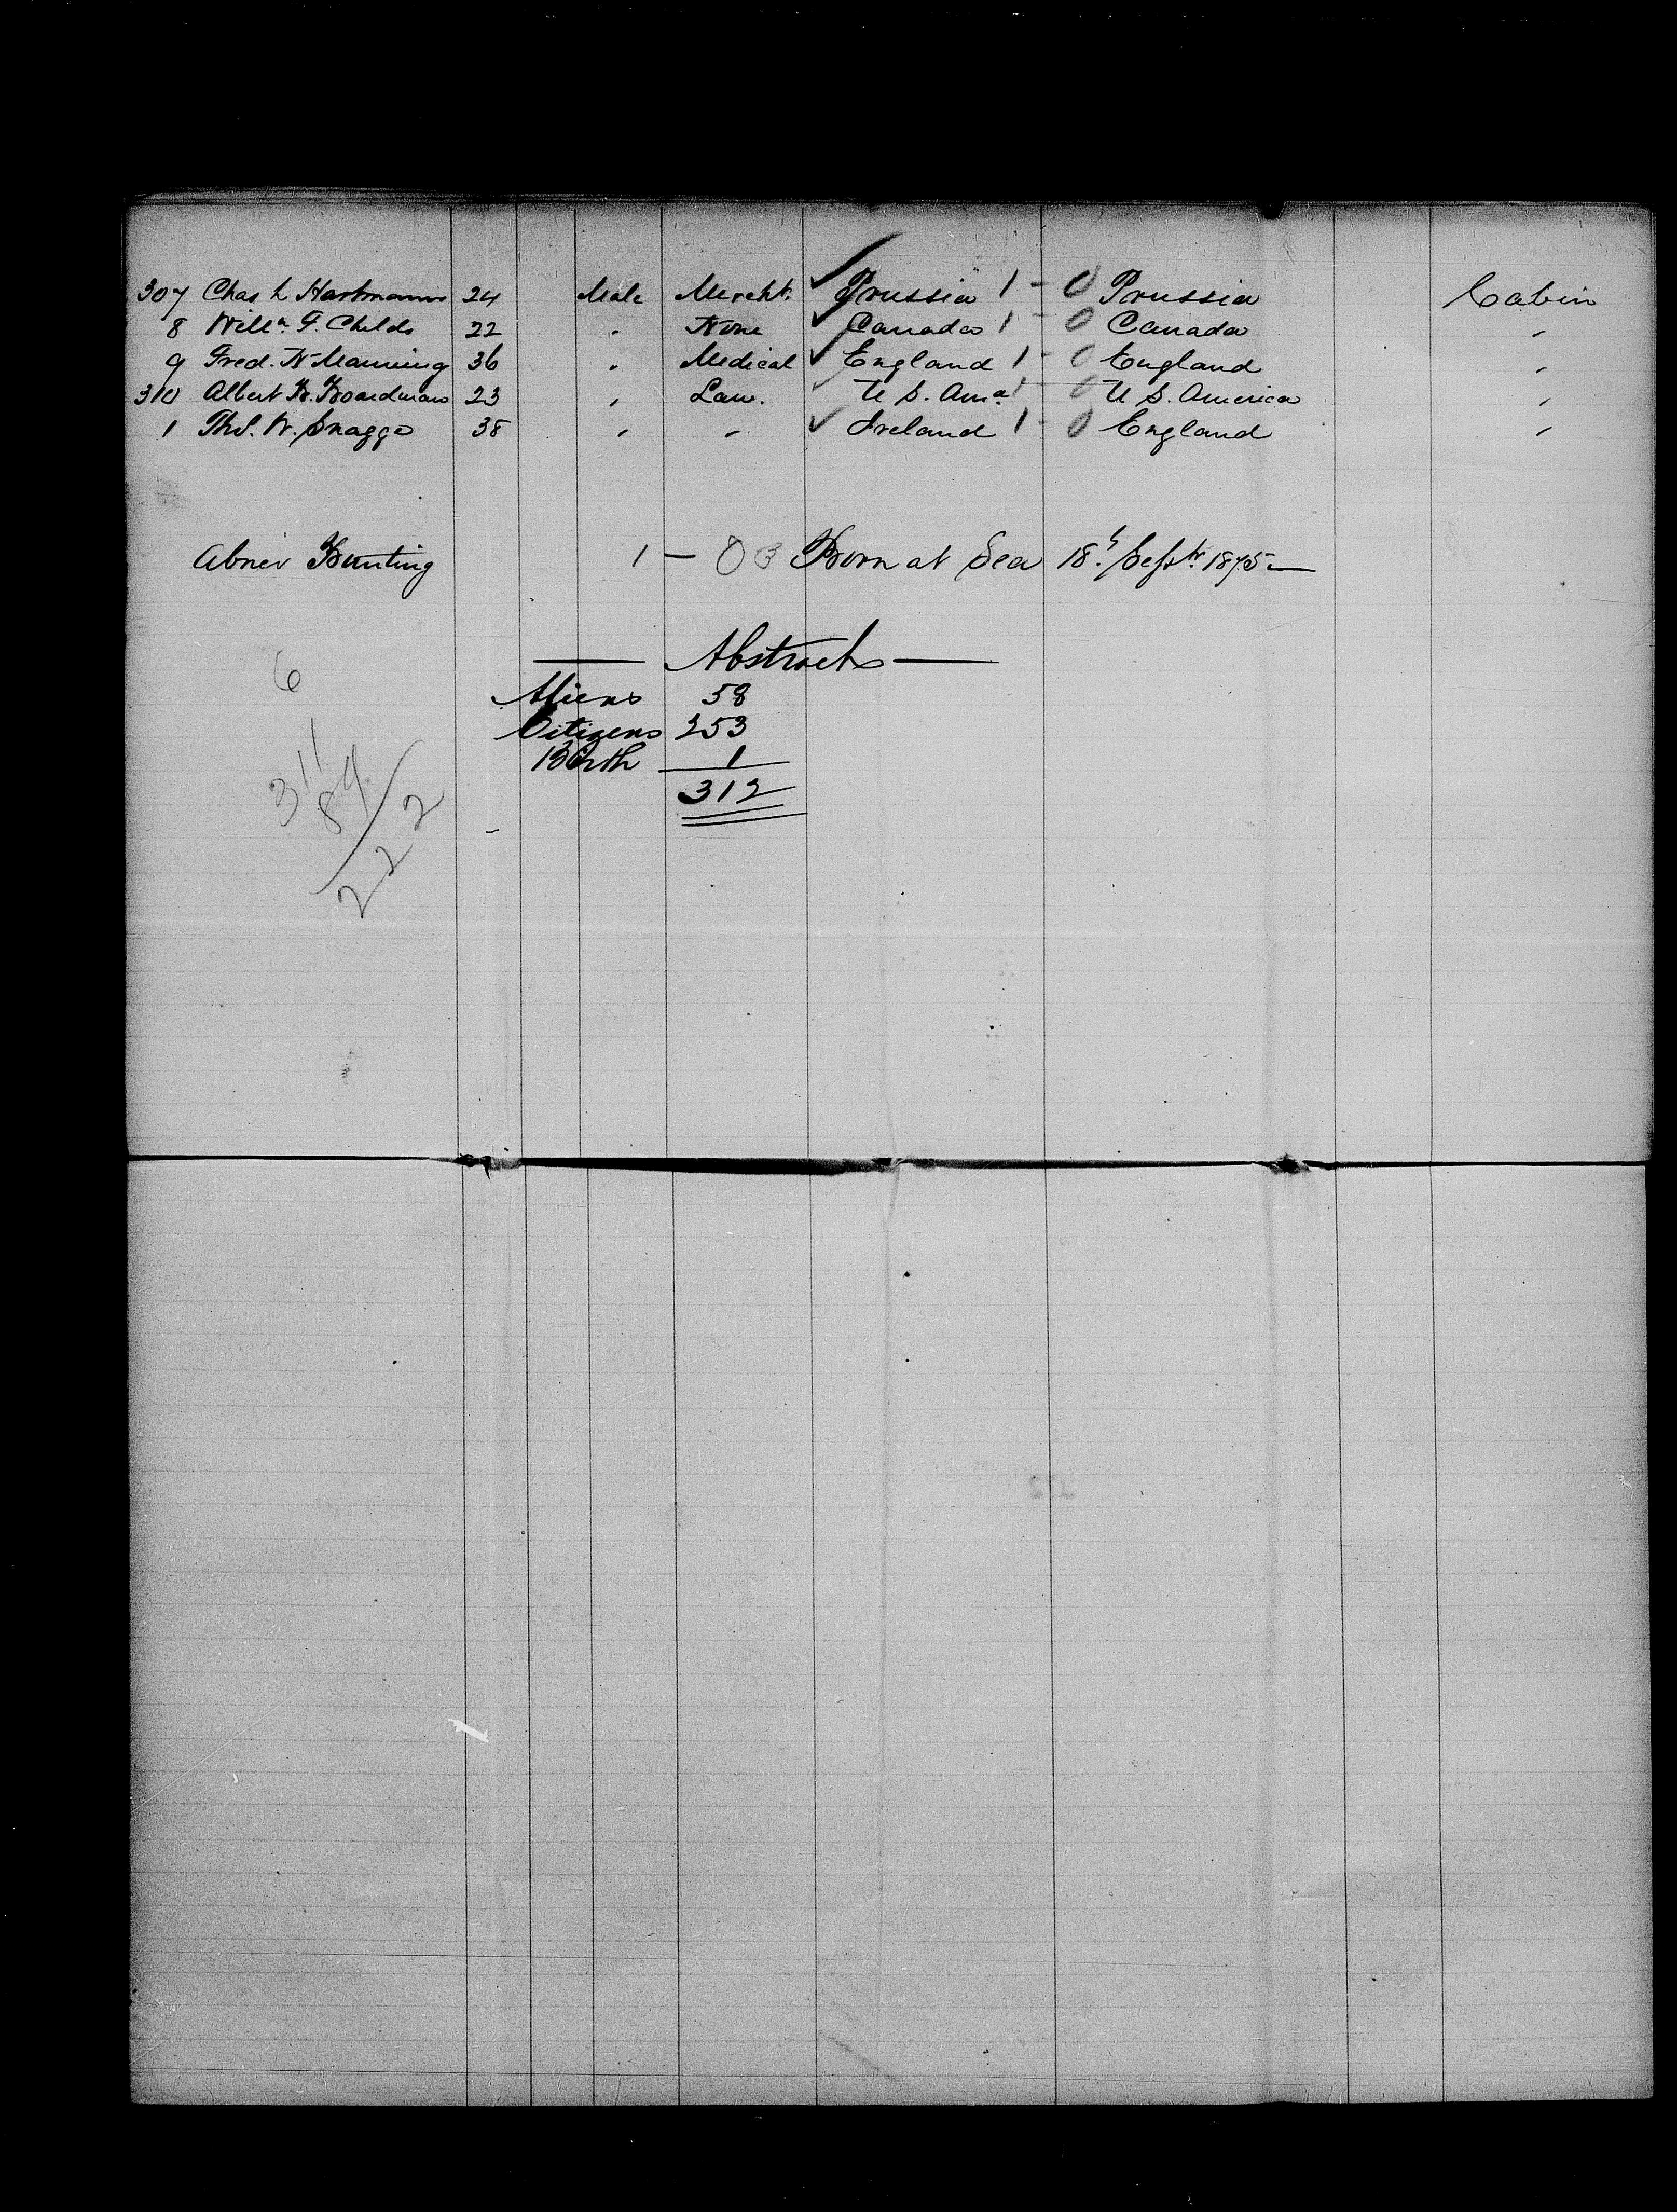 307 Chas L Hartmann 24 Male Mercht. Prussia 1 - 0 Prussia Cabin
8 Willm. F. Childs 22 " None Canada 1 - 0 Canada "
9 Fred. N. Manning 36 " Medical England 1 - 0 England "
310 Albert B. Boardman 23 " Law. U S. Ama 1 0 U S. America "
1 Thos. W. Snagge 38 " " Ireland 1 - 0 England "
Abner Bunting 1 - 0 3 Born at Sea 18th Septr. 1875 -
Abstract
6
Aliens 58
Citizens 253
Birth 1
312
311
89
222